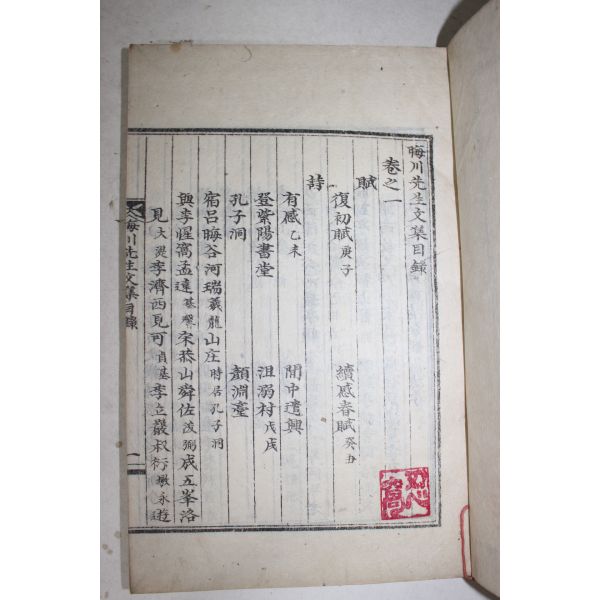 晦川先生文集目錄
卷之一
賦
復初賦 庚子 續感春賦 癸丑
詩
有感 乙未 閒中遣興
登紫陽書堂 沮溺村 戊戌
孔子洞 顏淵臺
宿呂晦谷河瑞 羲龍 山庄 時居孔子洞
與李惺窩孟達 基馨 宋恭山舜佐 浚弼 成五峯洛
見 大諟 李濟西見可 貞基 李立巖叔行 墩永 遊
晦川先生文集目錄 一